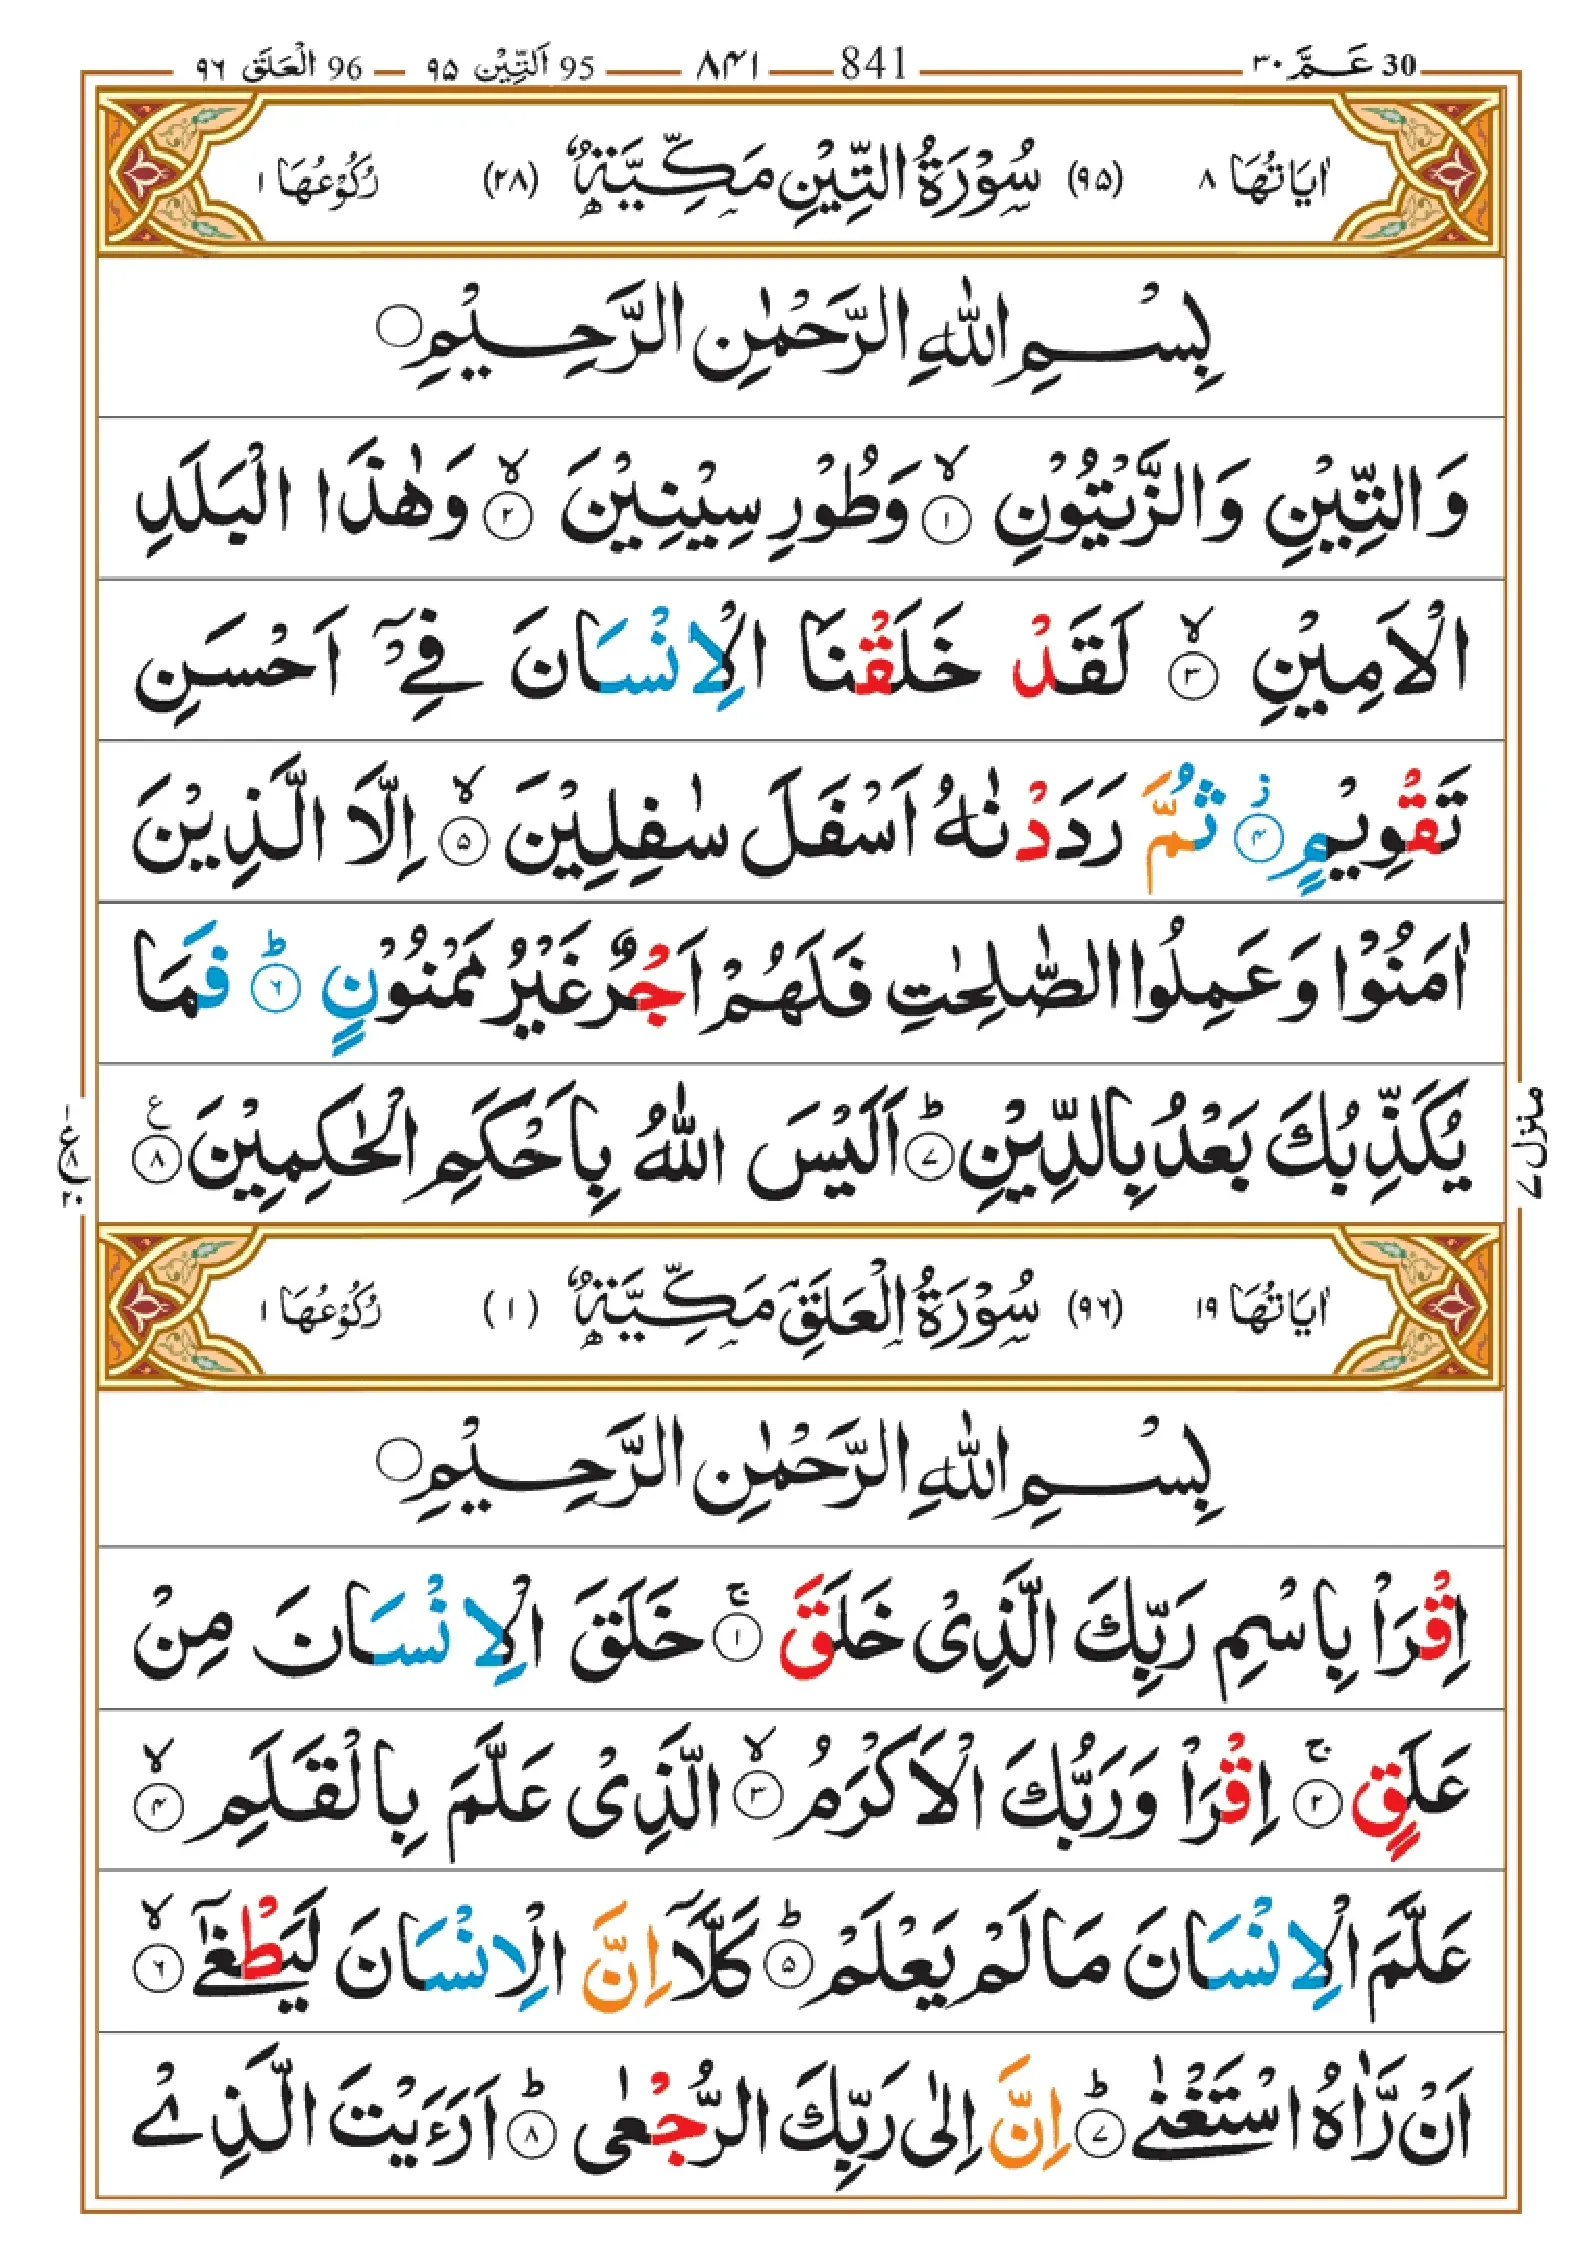 30 عَـمَّ ٣٠ 841 ٨٤١ 95 اَلتِّيْن ٩٥ 96 الْعَلَق ٩٦
اٰيَاتُهَا ٨ (٩٥) سُوْرَةُ التِّيْنِ مَكِّيَّةٌ (٢٨) رُكُوْعُهَا ١
بِسْمِ اللّٰهِ الرَّحْمٰنِ الرَّحِيْمِ ۝
وَالتِّيْنِ وَالزَّيْتُوْنِ ۙ‏﴿١﴾ وَطُوْرِ سِيْنِيْنَ ۙ‏﴿٢﴾ وَهٰذَا الْبَلَدِ
الْاَمِيْنِ ۙ‏﴿٣﴾ لَقَدْ خَلَقْنَا الْاِنْسَانَ فِيْۤ اَحْسَنِ
تَقْوِيْمٍ ز ﴿٤﴾ ثُمَّ رَدَدْنٰهُ اَسْفَلَ سٰفِلِيْنَ ۙ‏﴿٥﴾ اِلَّا الَّذِيْنَ
اٰمَنُوْا وَعَمِلُوا الصّٰلِحٰتِ فَلَهُمْ اَجْرٌ غَيْرُ مَمْنُوْنٍ ؕ‏﴿٦﴾ فَمَا
يُكَذِّبُكَ بَعْدُ بِالدِّيْنِ ؕ‏﴿٧﴾ اَلَيْسَ اللّٰهُ بِاَحْكَمِ الْحٰكِمِيْنَ ع ﴿٨﴾
١ ع ٨ ٢٠
منزل ٧
اٰيَاتُهَا ١٩ (٩٦) سُوْرَةُ الْعَلَقِ مَكِّيَّةٌ (١) رُكُوْعُهَا ١
بِسْمِ اللّٰهِ الرَّحْمٰنِ الرَّحِيْمِ ۝
اِقْرَاْ بِاسْمِ رَبِّكَ الَّذِيْ خَلَقَ ۚ‏﴿١﴾ خَلَقَ الْاِنْسَانَ مِنْ
عَلَقٍ ۚ‏﴿٢﴾ اِقْرَاْ وَرَبُّكَ الْاَكْرَمُ ۙ‏﴿٣﴾ الَّذِيْ عَلَّمَ بِالْقَلَمِ ۙ‏﴿٤﴾
عَلَّمَ الْاِنْسَانَ مَا لَمْ يَعْلَمْ ؕ‏﴿٥﴾ كَلَّاۤ اِنَّ الْاِنْسَانَ لَيَطْغٰۤى ۙ‏﴿٦﴾
اَنْ رَّاٰهُ اسْتَغْنٰى ؕ‏﴿٧﴾ اِنَّ اِلٰى رَبِّكَ الرُّجْعٰى ؕ‏﴿٨﴾ اَرَءَيْتَ الَّذِيْ